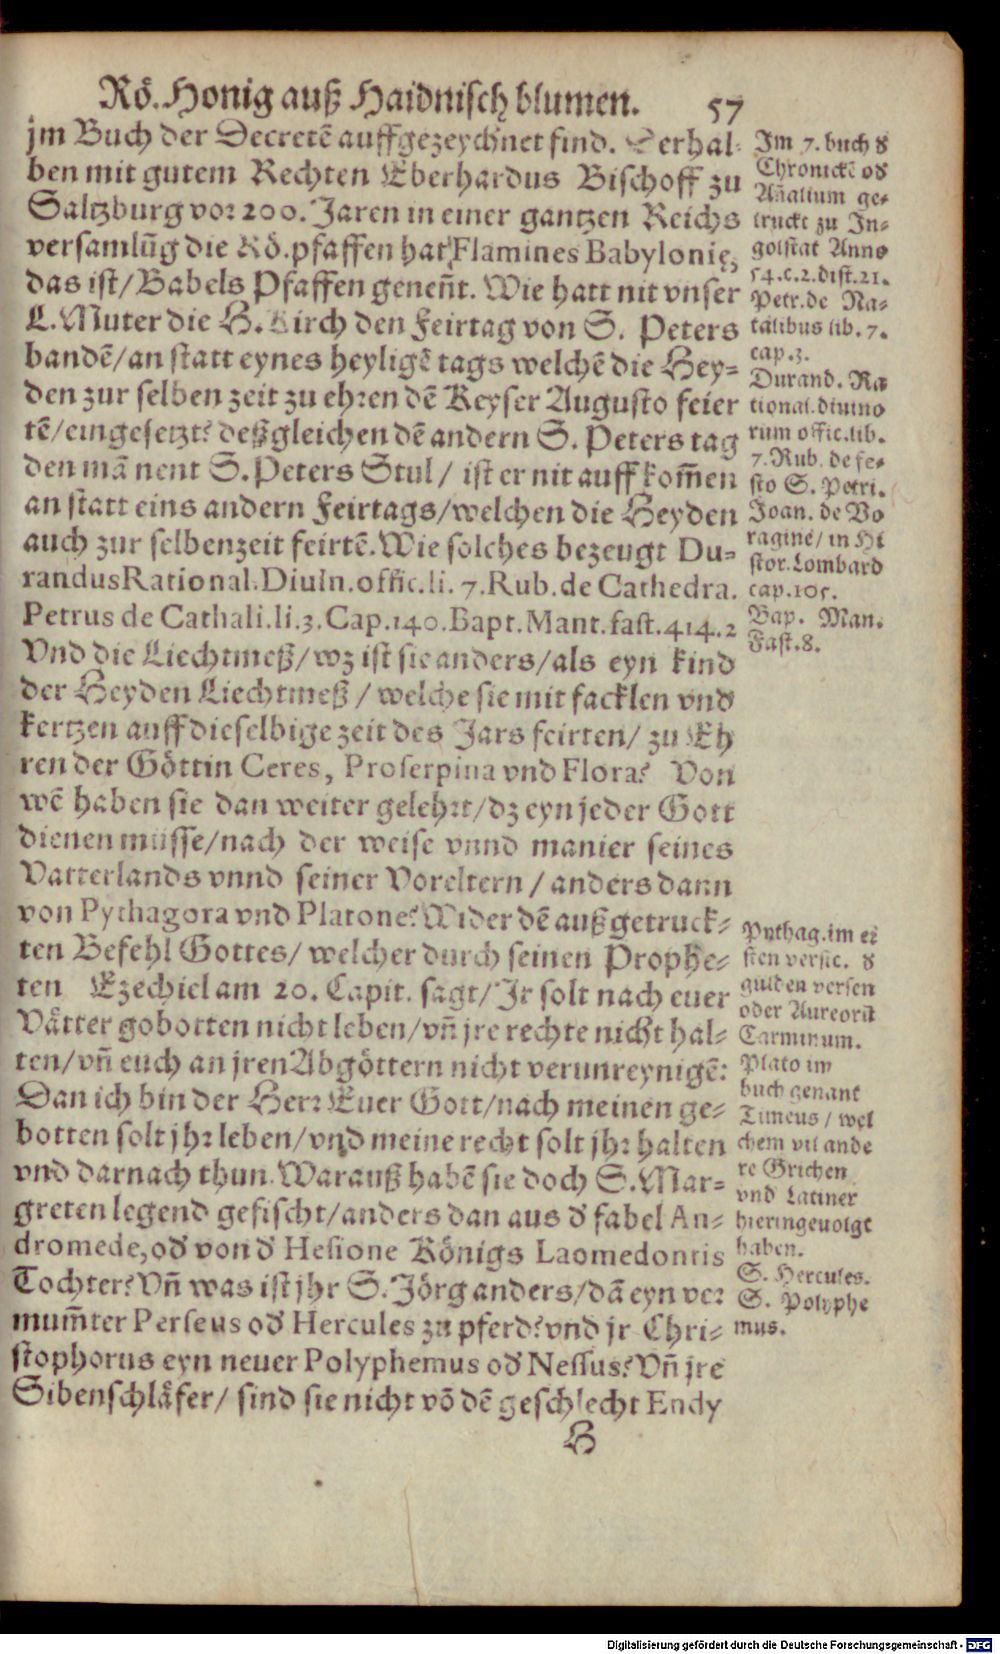 Rö. Honig auß Haidnisch blumen. 57
jm Buch der Decretē auffgezeychnet find. Derhal-
ben mit gutem Rechten Eberhardus Bischoff zu
Saltzburg vor 200. Jaren in einer gantzen Reichs
versamlūg die Rö. pfaffen hat Flamines Babylonię,
das ist/ Babels Pfaffen geneñt. Wie hatt nit vnser
L. Muter die H. Kirch den Feirtag von S. Peters
bandē/ an statt eynes heyligē tags welchē die Hey-
den zur selben zeit zu ehren dē Keyser Augusto feier
tē/ eingesetzt? deßgleichen dē andern S. Peters tag
den mā nent S. Peters Stul/ ist er nit auff kom̄en
an statt eins andern Feirtags/ welchen die Heyden
auch zur selbenzeit feirtē. Wie solches bezeugt Du-
randus Rational. Diuin. offic. li. 7. Rub. de Cathedra.
Petrus de Cathali. li. 3. Cap. 140. Bapt. Mant. fast. 414. 2
Vnd die Liechtmeß/ wz ist sie anders/ als eyn kind
der Heyden Liechtmeß / welche sie mit facklen vnd
kertzen auff dieselbige zeit des Jars feirten/ zu Eh
ren der Göttin Ceres, Proserpina vnd Flora? Von
wē haben sie dan weiter gelehrt/ dz eyn jeder Gott
dienen müsse/ nach der weise vnnd manier seines
Vatterlands vnnd seiner Voreltern / anders dann
von Pythagora vnd Platone? Wider dē außgetruck-
ten Befehl Gottes/ welcher durch seinen Prophe-
ten Ezechiel am 20. Capit. sagt/ Jr solt nach euer
Vätter gobotten nicht leben/ vñ jre rechte nicht hal-
ten/ vñ euch an jren Abgöttern nicht verunreynigē:
Dan ich bin der Herr Euer Gott/ nach meinen ge-
botten solt jhr leben/ vnd meine recht solt jhr halten
vnd darnach thun. Warauß habē sie doch S. Mar-
greten legend gefischt/ anders dan aus ď fabel An-
dromede, oď von ď Hesione Königs Laomedontis
Tochter? Vñ was ist jhr S. Jörg anders/ dā eyn ver
mum̄ter Perseus oď Hercules zu pferd? vnd jr Chri-
stophorus eyn neuer Polyphemus oď Nessus? Vñ jre
Sibenschläfer/ sind sie nicht vō dē geschlecht Endy
H
Im 7. buch ď
Chronickē oď
Añalium ge-
truckt zu In-
golstat Anno
54. c. 2. dist. 21.
Petr. de Na-
talibus lib. 7.
cap. 3.
Durand. Ra
tional. diuino
rum offic. lib.
7. Rub. de fe-
sto S. Petri.
Joan. de Vo
ragine/ in Hi
stor. Lombard
cap. 105.
Bap. Man.
Fast. 8.
Pythag. im er
sten versic. ď
gulden versen
oder Aureorū
Carminum.
Plato im
buch genant
Timeus / wel
chem vil ande
re Grichen
vnd Latiner
hieringevolgt
haben.
S. Hercules.
S. Polyphe
mus.
Digitalisierung gefördert durch die Deutsche Forschungsgemeinschaft - DFG